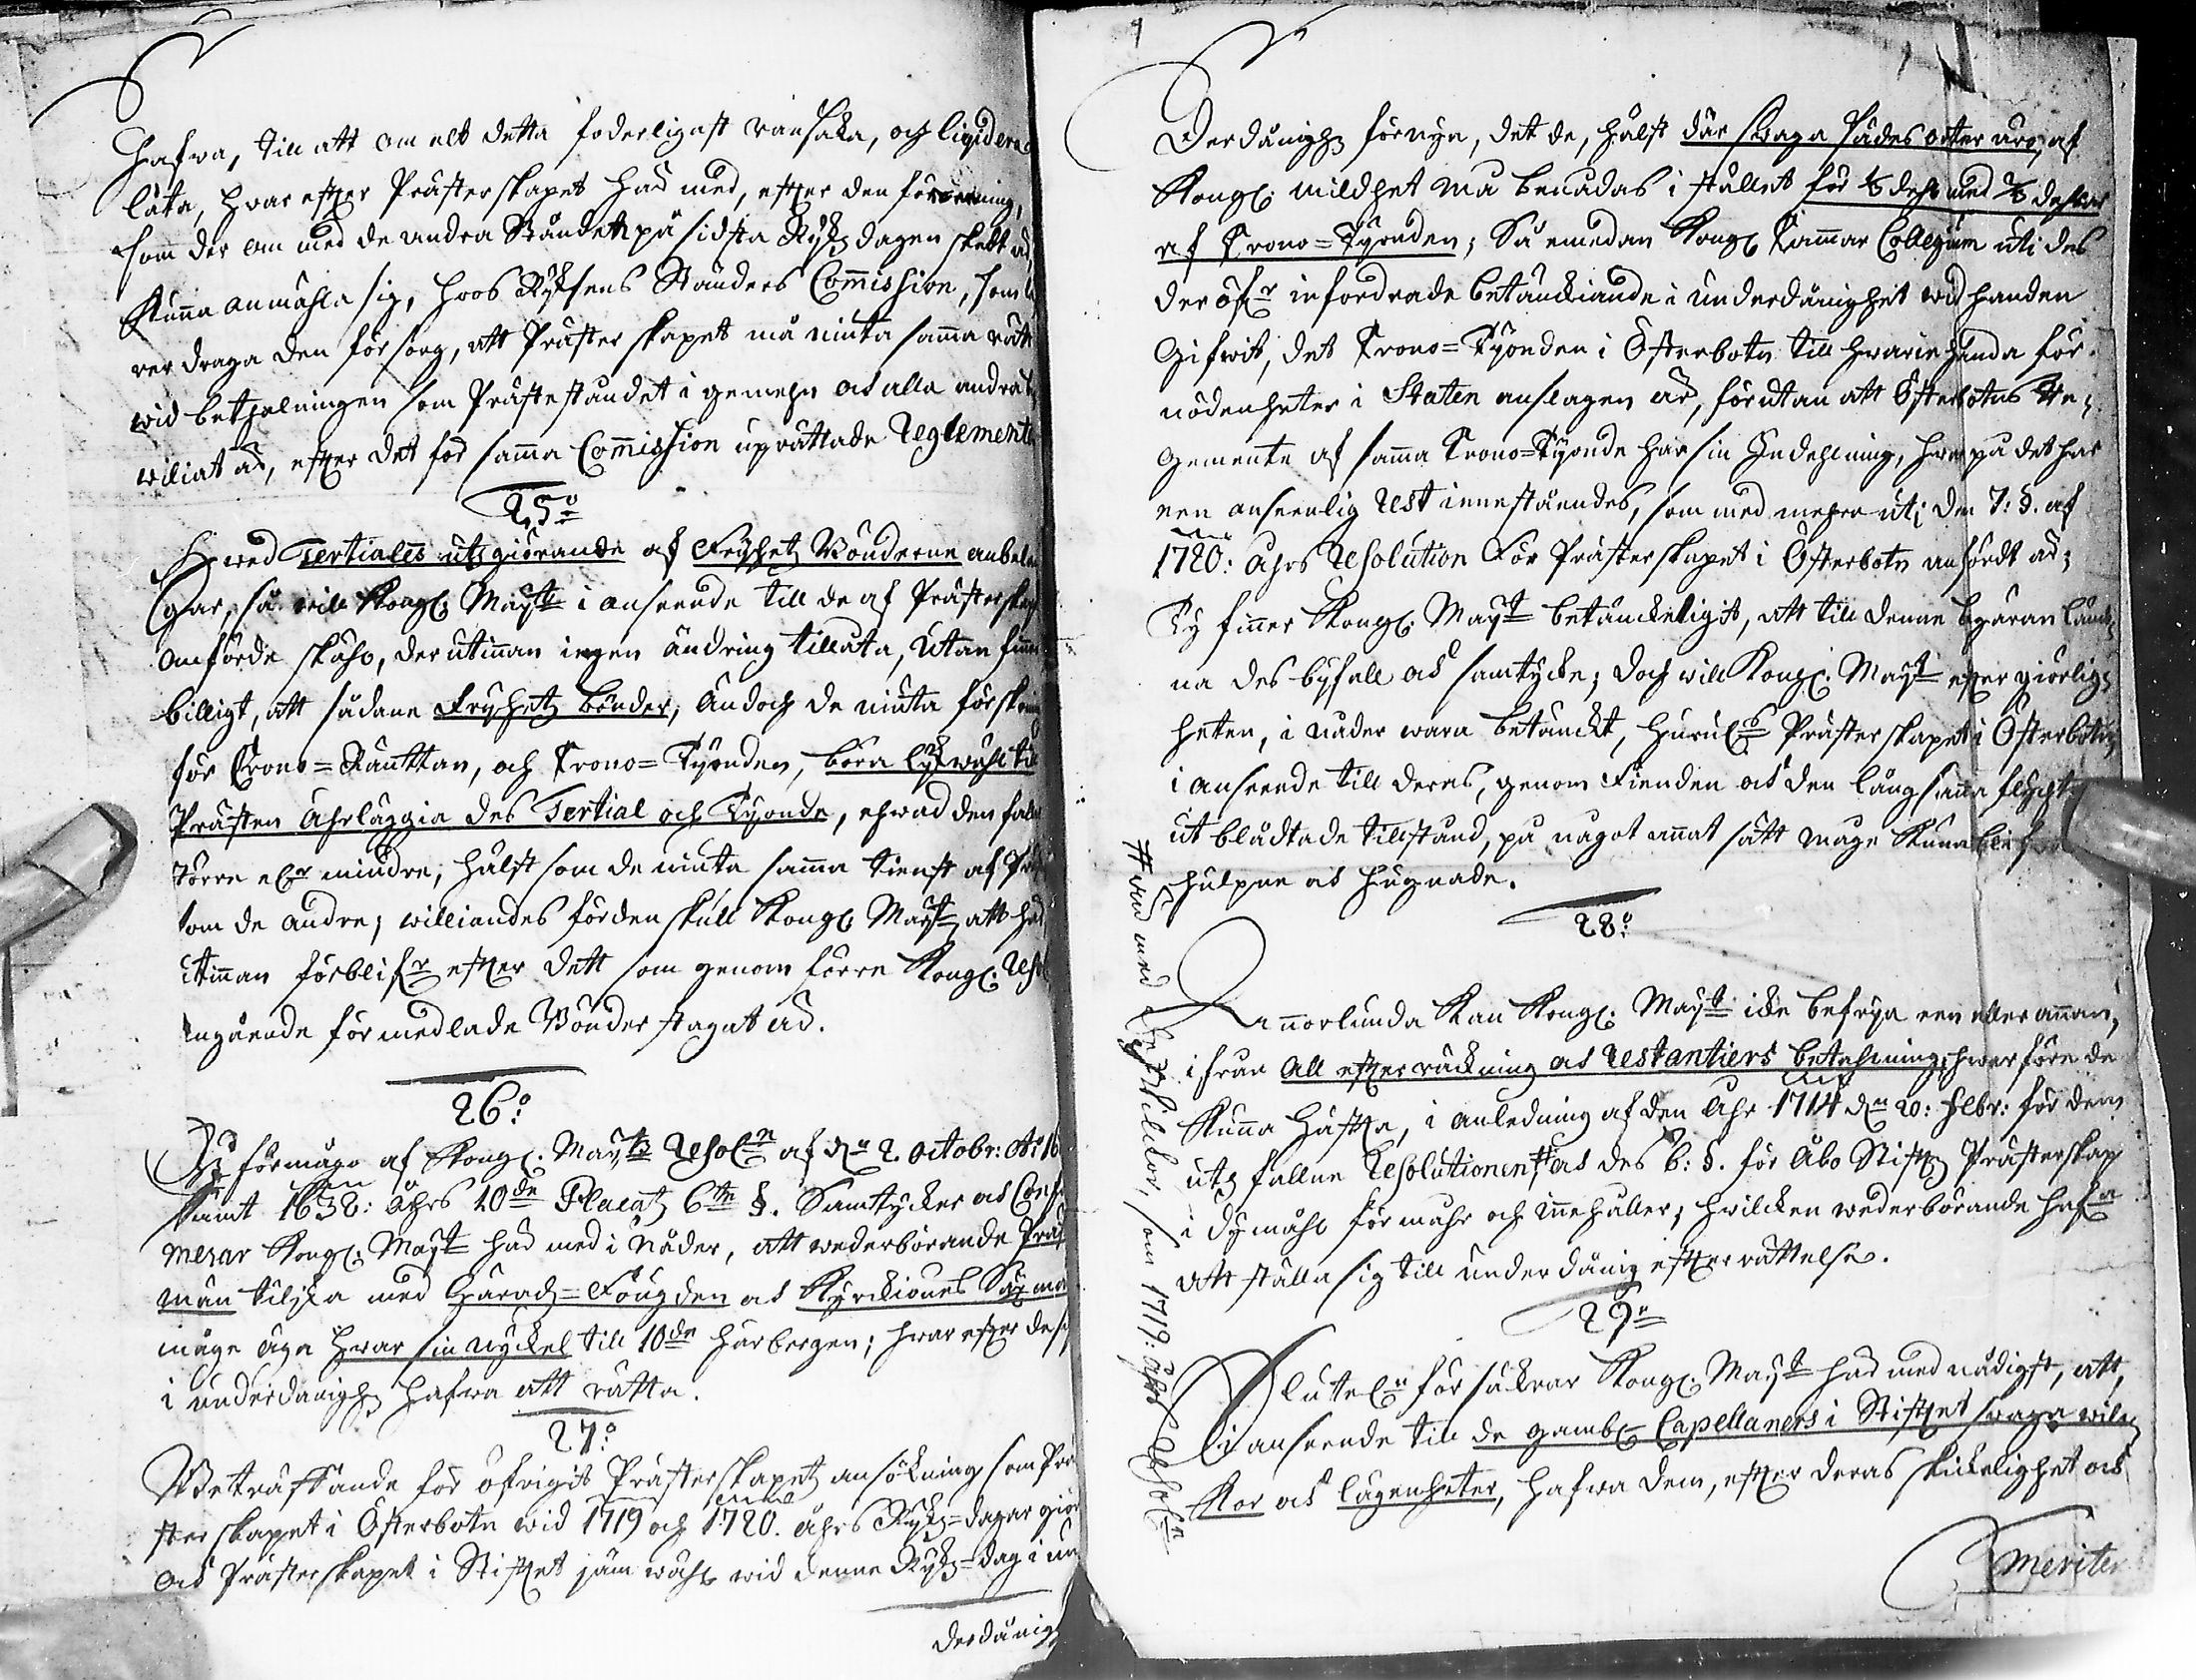 hafwa, till att om alt detta foderligast ransaka, och liqvidera
låta, hwar effter Prästerskapet här med, effter den förening,
som der om med de andra Ståndet på sidsta Rijksdagen skedt är,
kunna anmähla sig, hoos Rijksens Ständers Commission, som
draga den försorg, att Prästerskapet må niuta samma rätt
wid betahlningen som Prästeståndet i gemehn och alla andra
wiliat är, effter det för samma Commission uprättade Reglemente
25o
Hwad Tertialens utgiörande af Frijhets Bönderne anbelan
gar, så will Kongl. Mayst: i anseende till de af Prästerskap
anförde skähl, der utinnan ingen ändring tillåta, utan finner
billigt, att sådane Frijhets bönder, ändoch de niuta förskoning
för Crono=Ränttan, och Krono=Tijonden, böra lijkwähl till
Prästen ährläggia des Tertial och Tijonde, ehwad den faller
större elr mindre, hälst som de niuta samma tienst af Prä
som de andre; williandes förden skull Kongl. Mayst: att här
utinnan förblifr effter dett som genom förre Kongl. Resol
angående förmedlade Bönder stagat är.
26o
I förmågo af Kongl. Mayts Resoln af dn 2. Octobr: Ao 16
samt 1638: Åhrs 10de Placatz 6te §. Samtycker och Confir
merar Kongl. Mayst: här med i Nåder, att wederbörande Präst
män tillijka med Härads=Fougden och Kyrckiones Säxmän
måge äga hwar sin nyckel till 10de härbergen; hwar effter de sig
i underdånighet hafwa att rätta.
27o
Beträffande för öfrigit Prästerskapets ansökning som Prä
sterskapet i Österbotn wid 1719 och 1720. åhrs Rijks=dagar giör
och Prästerskapet i Stifftet jämwähl wid denne Rijks=dag i un
derdånig
Derdånighet förnya, det de, hälst där swaga sädes orter äro, af
Kongl. mildhet må benådas i stället för 1/3 dehl med 2/3 dehlar
af Krono=Tijonden; Så emedan Kongl. Cammar Collegium uti des
der öfr infordrade betänckiande i underdånighet wid handen
Gifwit, det Krono=Tijonden i Österbotn till hwarjehanda för-
nödenheter i Staten anslagen är, förutan att Österbotns Re-
gemente af samma Krono=Tijonde har sin Indehlning, hwar på det har
een anseenlig rest innestående, som med mehra uti den 7: §. af
1720: åhrs Resolution För Prästerskapet i Österbotn anfördt är;
Ty finner Kongl. Mayst: betänckeligit, att till denne begäran läm-
na des byfall och samtycke; doch will Kongl. Mayst: effter giörlig-
heten, i nåder wara betänckt, huruledes Prästerskapet i Österbotn,
i anseende till deras, genom Fienden och den långsamma flychten
ut blådtade tillstånd, på något annat sätt måge kunna bli
hulpne och hugnade.
28o:
Annorlunda kan Kongl. Mayst: icke befrija een eller annan,
ifrån all effterräckning och restantiers betahlning, hwarföre de
kunna häffta, i anledning af den åhr 1714 dn 20: Xbr: för dem
utfallne Resolutionen # och des 6: §. för Åbo Stiffts Prästerskap
i dy måhl förmähr och innehåller; hwilcken wederbörande hafa
att ställa sig till underdånig effterrättelse.
# äd med des tilckor, som 1719: åhrs Resoln
29o
Sluteln försäkrar Kongl. Mayst: här med nådigst, att,
i anseende till de gambl. Capellaners i Stifftet swaga wil-
kor och lägenheter, hafwa dem, effter deras skickelighet och
meriter